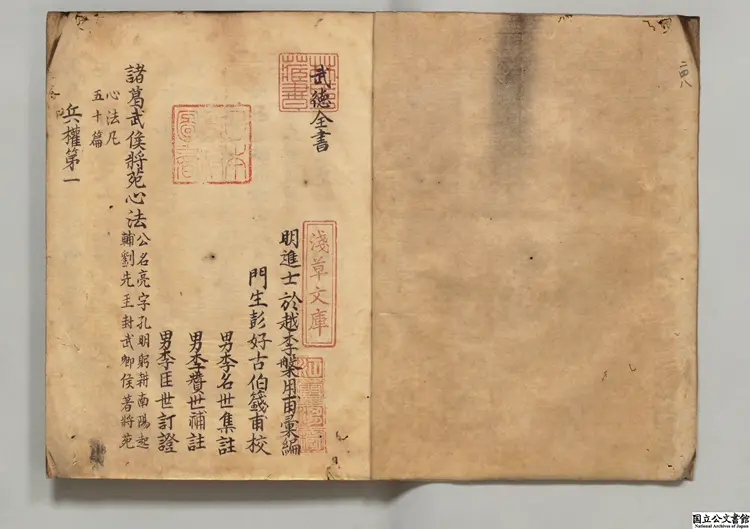 二四八
武德全書
明進士於越李槃用甫彙編
淺草文庫
門生彭好古伯籛甫校
男李名世集註
男李賚世補註
男李臣世訂證
諸葛武侯將苑心法
公名亮字孔明躬耕南陽起
輔劉先王封武卿侯著將苑
心法凡
五十篇
兵權第一
国立公文書館
National Archives of Japan